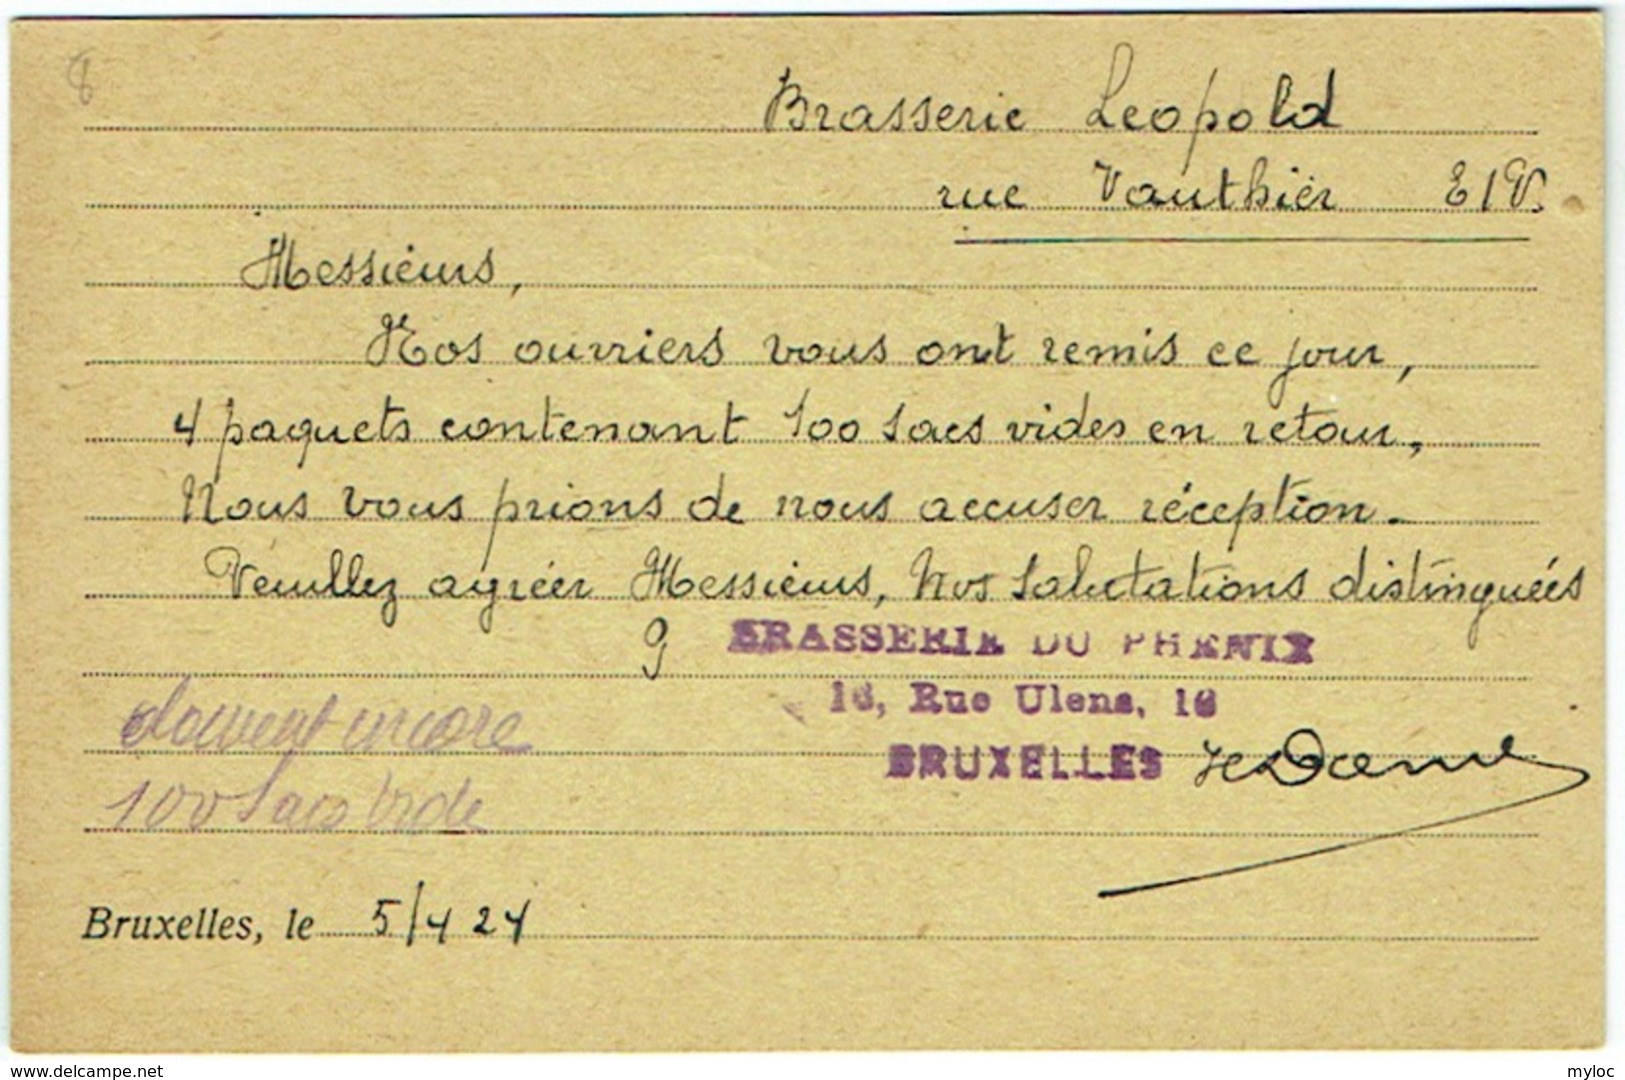 8
Brasserie Leopold
rue Vauthier E/V.
Messieurs,
Nos ouvriers vous ont remis ce jour,
4 paquets contenant 100 sacs vides en retour,
Nous vous prions de nous accuser réception.
Veuillez agréer Messieurs, Nos salutations distinguées
BRASSERIE DU PHENIX
16, Rue Ulens, 16
BRUXELLES
doivent encore
100 Sacs Vide
Bruxelles, le 5/4 24
www.delcampe.net
myloc